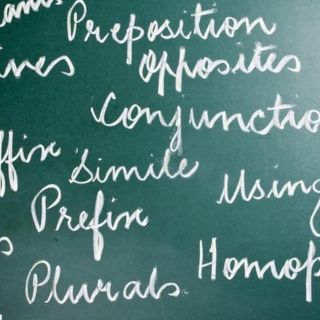 Preposition
ives Opposites
Conjunctio
ffix Simile Using
Prefix
s Homop
Plurals